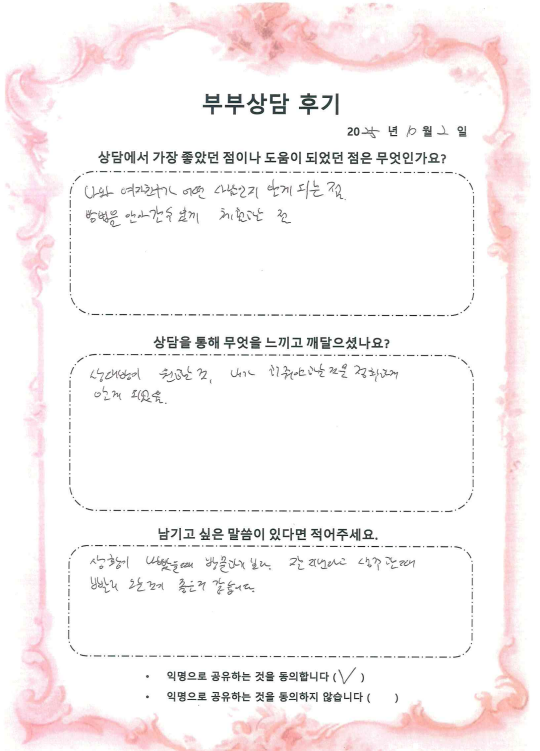 부부상담 후기
2025 년 10 월 2 일
상담에서 가장 좋았던 점이나 도움이 되었던 점은 무엇인가요?
나와 여자친구가 어떤 사람인지 알게 되는 점.
방법을 알아갈수 있게 제공한 점
상담을 통해 무엇을 느끼고 깨달으셨나요?
상대방이 원하는 것, 내가 해줘야하는것을 정확하게
알게 되었음.
남기고 싶은 말씀이 있다면 적어주세요.
상황이 나빴을때 방문하기 보다. 잘 지내고 있을때
빨리 오는게 좋은거 같습니다.
• 익명으로 공유하는 것을 동의합니다 ( √ )
• 익명으로 공유하는 것을 동의하지 않습니다 ( )